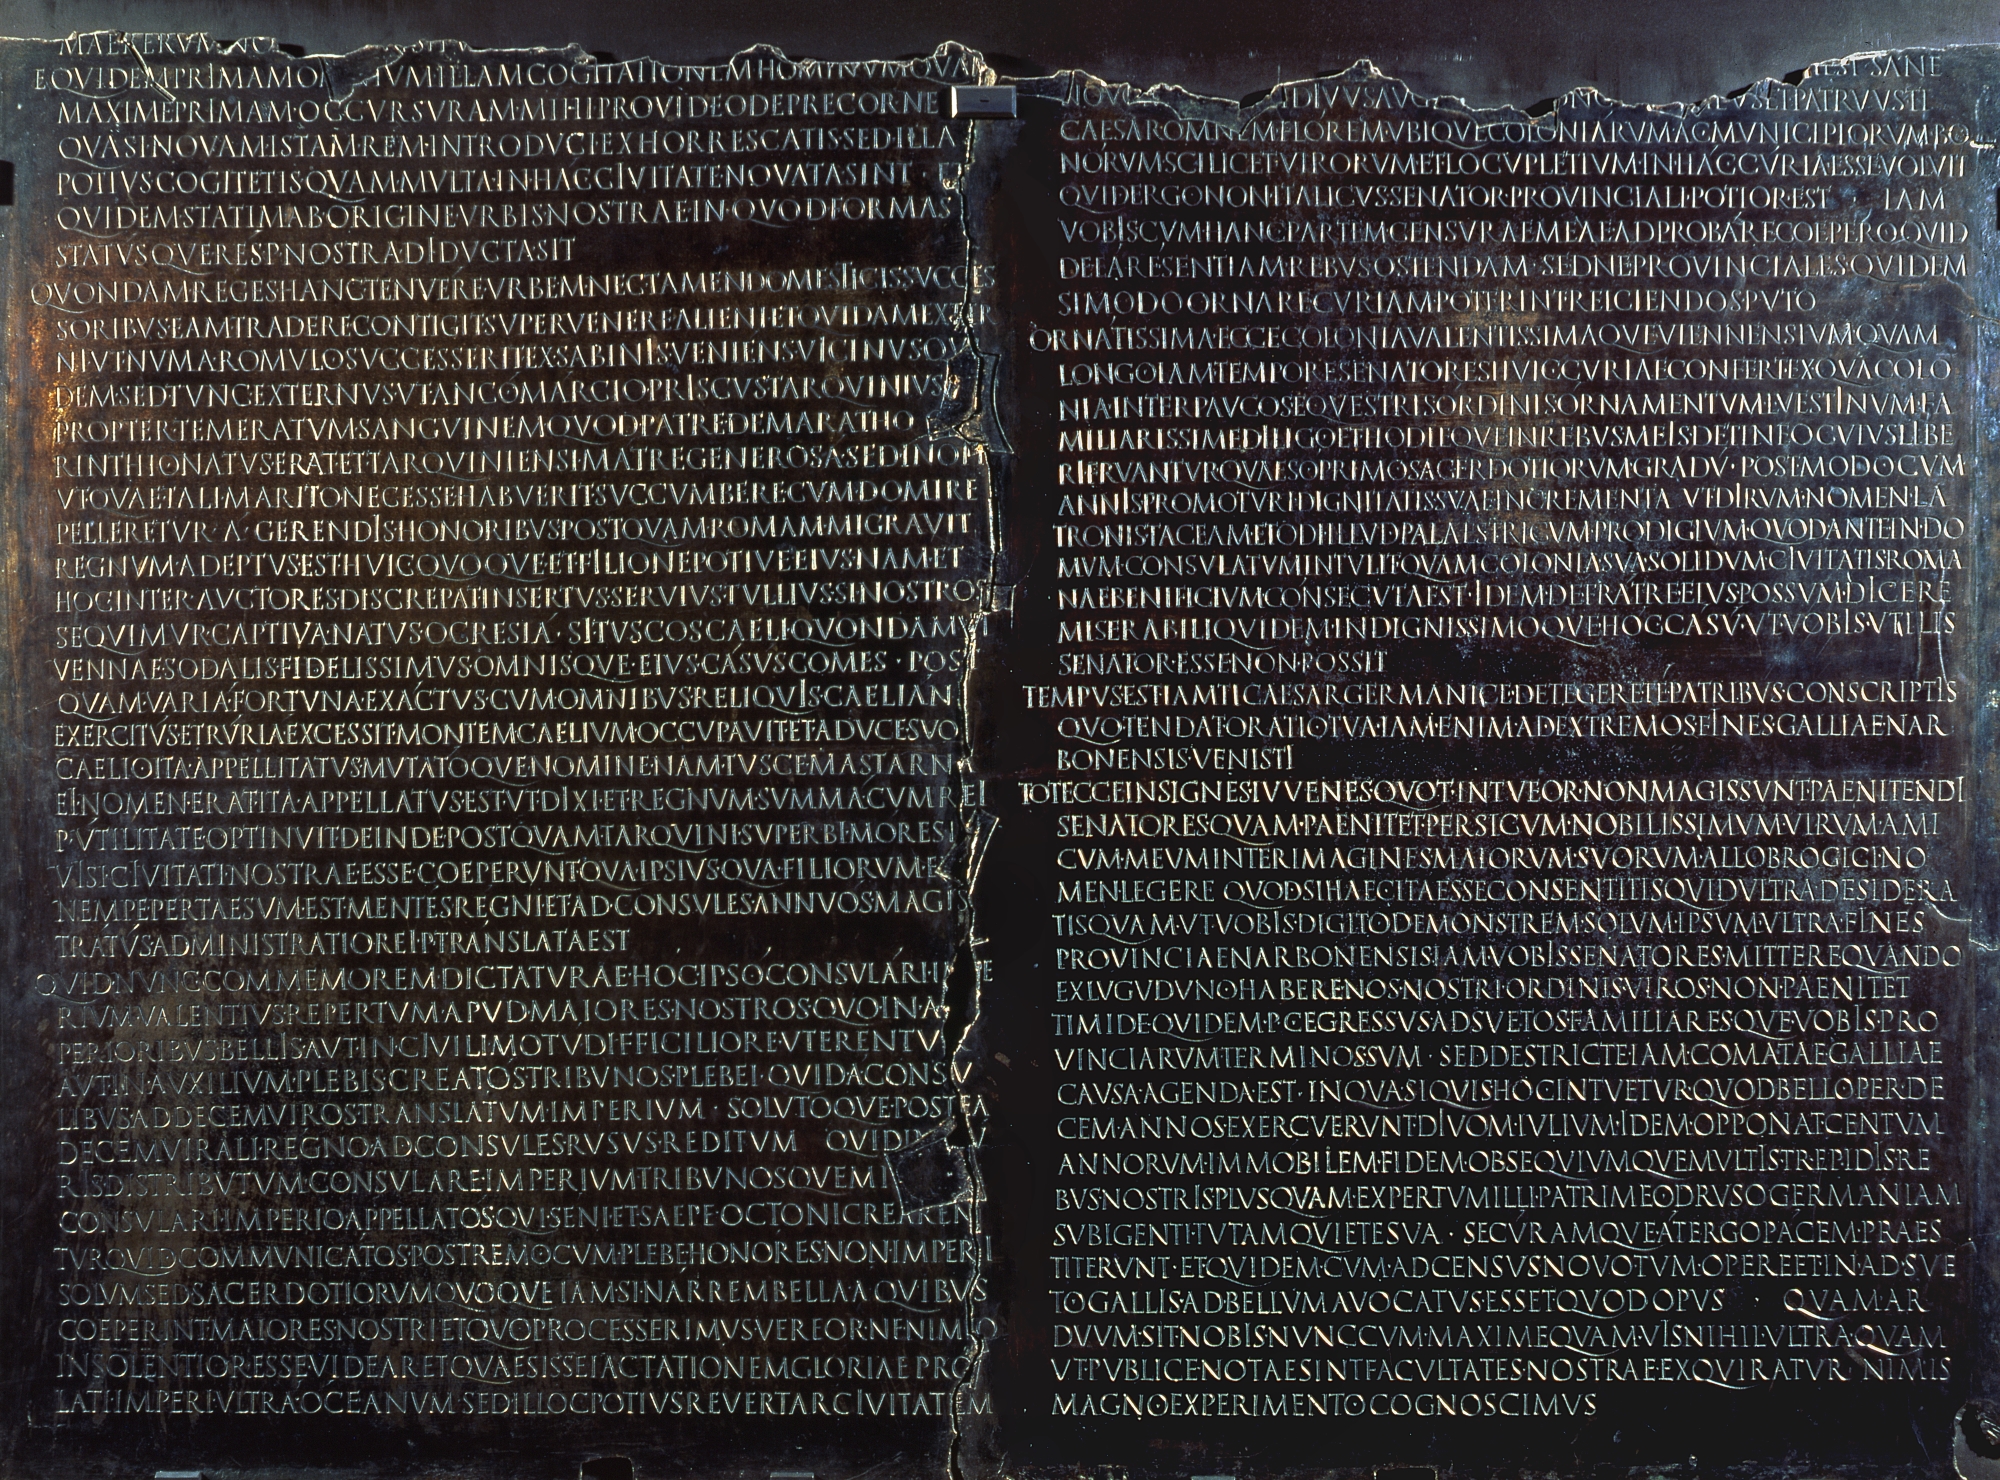 MAERERVM·NO SIT V
EQVIDEM·PRIMAM·O IVM·ILLAM·COGITATIONEM·HOMINVM·QVA
MAXIME·PRIMAM·OCCVRSVRAM·MIHI·PROVIDEO·DEPRECOR·NE
QVASI·NOVAM·ISTAM·REM·INTRODVCI·EXHORRESCATIS·SED·ILLA
POTIVS·COGITETIS·QVAM·MVLTA·IN·HAC·CIVITATE·NOVATA·SINT · ET
QVIDEM·STATIM·AB·ORIGINE·VRBIS·NOSTRAE·IN·QVOD·FORMAS
STATVSQVE·RES·P·NOSTRA·DIDVCTA·SIT
QVONDAM·REGES·HANC·TENVERE·VRBEM·NEC·TAMEN·DOMESTICIS·SVCCES
SORIBVS·EAM·TRADERE·CONTIGIT·SVPERVENERE·ALIENI·ET·QVIDAM·EXTER
NI·VT·NVMA·ROMVLO·SVCCESSERIT·EX·SABINIS·VENIENS·VICINVS·QVI
DEM·SED·TVNC·EXTERNVS·VT·ANCO·MARCIO·PRISCVS·TARQVINIVS
PROPTER·TEMERATVM·SANGVINEM·QVOD·PATRE·DEMARATHO
RINTHIO·NATVS·ERAT·ET·TARQVINIENSI·MATRE·GENEROSA·SED·INOPI
VT·QVAE·TALI·MARITO·NECESSE·HABVERIT·SVCCVMBERE·CVM·DOMI·RE
PELLERETVR·A·GERENDIS·HONORIBVS·POSTQVAM·ROMAM·MIGRAVIT
REGNVM·ADEPTVS·EST·HVIC·QVOQVE·ET·FILIO·NEPOTIVE·EIVS·NAM·ET
HOC·INTER·AVCTORES·DISCREPAT·INSERTVS·SERVIVS·TVLLIVS·SI·NOSTROS
SEQVIMVR·CAPTIVA·NATVS·OCRESIA · SI·TVSCOS·CAELI·QVONDAM·VI
VENNAE·SODALIS·FIDELISSIMVS·OMNISQVE·EIVS·CASVS·COMES · POST
QVAM·VARIA·FORTVNA·EXACTVS·CVM·OMNIBVS·RELIQVIS·CAELIANI
EXERCITVS·ETRVRIA·EXCESSIT·MONTEM·CAELIVM·OCCVPAVIT·ET·A·DVCE·SVO
CAELIO·ITA·APPELLITATVS·MVTATOQVE·NOMINE·NAM·TVSCE·MASTARNA
EI·NOMEN·ERAT·ITA·APPELLATVS·EST·VT·DIXI·ET·REGNVM·SVMMA·CVM·REI
P·VTILITATE·OPTINVIT·DEINDE·POSTQVAM·TARQVINI·SVPERBI·MORES·I
VISI·CIVITATI·NOSTRAE·ESSE·COEPERVNT·QVA·IPSIVS·QVA·FILIORVM·E
NEMPE·PERTAESVM·EST·MENTES·REGNI·ET·AD·CONSVLES·ANNVOS·MAGIS
TRATVS·ADMINISTRATIO·REI·P·TRANSLATA·EST
QVID·NVNC·COMMEMOREM·DICTATVRAE·HOC·IPSO·CONSVLARI·IMPE
RIVM·VALENTIVS·REPERTVM·APVD·MAIORES·NOSTROS·QVO·IN·A
PERIORIBVS·BELLIS·AVT·IN·CIVILI·MOTV·DIFFICILIORE·VTERENTVR
AVT·IN·AVXILIVM·PLEBIS·CREATOS·TRIBVNOS·PLEBEI·QVID·A·CONSV
LIBVS·AD·DECEMVIROS·TRANSLATVM·IMPERIVM · SOLVTOQVE·POSTEA
DECEMVIRALI·REGNO·AD·CONSVLES·RVSVS·REDITVM QVID V
RIS·DISTRIBVTVM·CONSVLARE·IMPERIVM·TRIBVNOSQVE·MI
CONSVLARI·IMPERIO·APPELLATOS·QVI·SENI·ET·SAEPE·OCTONI·CREAREN
TVR·QVID·COMMVNICATOS·POSTREMO·CVM·PLEBE·HONORES·NON·IMPERI
SOLVM·SED·SACERDOTIORVM·QVOQVE·IAM·SI·NARREM·BELLA·A·QVIBVS
COEPERINT·MAIORES·NOSTRI·ET·QVO·PROCESSERIMVS·VEREOR·NE·NIMIO
INSOLENTIOR·ESSE·VIDEAR·ET·QVAESISSE·IACTATIONEM·GLORIAE·PRO
LATI·IMPERI·VLTRA·OCEANVM·SED·ILLOC·POTIVS·REVERTAR·CIVITATEM
EST·SANE
NOVO DIVVS·AVG NO VS·ET·PATRVVS·TI
CAESAR·OMNEM·FLOREM·VBIQVE·COLONIARVM·AC·MVNICIPIORVM·BO
NORVM·SCILICET·VIRORVM·ET·LOCVPLETIVM·IN·HAC·CVRIA·ESSE·VOLVIT
QVID·ERGO·NON·ITALICVS·SENATOR·PROVINCIALI·POTIOR·EST · IAM
VOBIS·CVM·HANC·PARTEM·CENSVRAE·MEAE·ADPROBARE·COEPERO·QVID
DE·EA·RE·SENTIAM·REBVS·OSTENDAM·SED·NE·PROVINCIALES·QVIDEM
SI·MODO·ORNARE·CVRIAM·POTERINT·REICIENDOS·PVTO
ORNATISSIMA·ECCE·COLONIA·VALENTISSIMAQVE·VIENNENSIVM·QVAM
LONGO·IAM·TEMPORE·SENATORES·HVIC·CVRIAE·CONFERT·EX·QVA·COLO
NIA·INTER·PAVCOS·EQVESTRIS·ORDINIS·ORNAMENTVM·L·VESTINVM·FA
MILIARISSIME·DILIGO·ET·HODIEQVE·IN·REBVS·MEIS·DETINEO·CVIVS·LIBE
RI·FRVANTVR·QVAESO·PRIMO·SACERDOTIORVM·GRADV·POST·MODO·CVM
ANNIS·PROMOTVRI·DIGNITATIS·SVAE·INCREMENTA VT·DIRVM·NOMEN·LA
TRONIS·TACEAM·ET·ODI·ILLVD·PALAESTRICVM·PRODIGIVM·QVOD·ANTE·IN·DO
MVM·CONSVLATVM·INTVLIT·QVAM·COLONIA·SVA·SOLIDVM·CIVITATIS·ROMA
NAE·BENIFICIVM·CONSECVTA·EST·IDEM·DE·FRATRE·EIVS·POSSVM·DICERE
MISERABILI·QVIDEM·INDIGNISSIMOQVE·HOC·CASV·VT·VOBIS·VTILIS
SENATOR·ESSE·NON·POSSIT
TEMPVS·EST·IAM·TI·CAESAR·GERMANICE·DETEGERE·TE·PATRIBVS·CONSCRIPTIS
QVO·TENDAT·ORATIO·TVA·IAM·ENIM·AD·EXTREMOS·FINES·GALLIAE·NAR
BONENSIS·VENISTI
TOT·ECCE·INSIGNES·IVVENES·QVOT·INTVEOR·NON·MAGIS·SVNT·PAENITENDI
SENATORES·QVAM·PAENITET·PERSICVM·NOBILISSIMVM·VIRVM·AMI
CVM·MEVM·INTER·IMAGINES·MAIORVM·SVORVM·ALLOBROGICI·NO
MEN·LEGERE QVOD·SI·HAEC·ITA·ESSE·CONSENTITIS·QVID·VLTRA·DESIDERA
TIS·QVAM·VT·VOBIS·DIGITO·DEMONSTREM·SOLVM·IPSVM·VLTRA·FINES
PROVINCIAE·NARBONENSIS·IAM·VOBIS·SENATORES·MITTERE·QVANDO
EX·LVGVDVNO·HABERE·NOS·NOSTRI·ORDINIS·VIROS·NON·PAENITET
TIMIDE·QVIDEM·P·C·EGRESSVS·ADSVETOS·FAMILIARESQVE·VOBIS·PRO
VINCIARVM·TERMINOS·SVM · SED·DESTRICTE·IAM·COMATAE·GALLIAE
CAVSA·AGENDA·EST·IN·QVA·SI·QVIS·HOC·INTVETVR·QVOD·BELLO·PER·DE
CEM·ANNOS·EXERCVERVNT·DIVOM·IVLIVM·IDEM·OPPONAT·CENTVM
ANNORVM·IMMOBILEM·FIDEM·OBSEQVIVMQVE·MVLTIS·TREPIDIS·RE
BVS·NOSTRIS·PLVS·QVAM·EXPERTVM·ILLI·PATRI·MEO·DRVSO·GERMANIAM
SVBIGENTI·TVTAM·QVIETE·SVA · SECVRAMQVE·A·TERGO·PACEM·PRAES
TITERVNT·ET·QVIDEM·CVM·AD·CENSVS·NOVO·TVM·OPERE·ET·IN·ADSVE
TO·GALLIS·AD·BELLVM·AVOCATVS·ESSET·QVOD·OPVS · QVAM·AR
DVVM·SIT·NOBIS·NVNC·CVM·MAXIME·QVAM·VIS·NIHIL·VLTRA·QVAM
VT·PVBLICE·NOTAE·SINT·FACVLTATES·NOSTRAE·EXQVIRATVR·NIMIS
MAGNO·EXPERIMENTO·COGNOSCIMVS